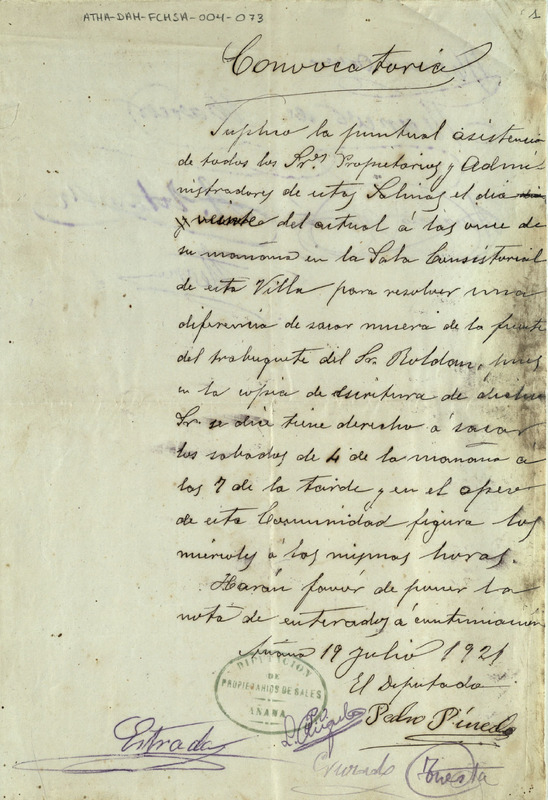 ATHA-DAH-FCHSA-004-073
1
Convocatoria
Suplico la puntual asistencia
de todos los Sres Propietarios y Admi-
nistradores de estas Salinas el dia
y veinte del actual á las once de
su mañana en la Sala Consistorial
de esta Villa para resolver una
diferencia de sacar muera de la fuente
del trabuquete del Sr. Roldan, pues
en la copia de escritura de dicho
Sr. se dice tiene derecho á sacar
los sabados de 4 de la mañana á
las 7 de la tarde y en el apeo
de esta Comunidad figura los
miércoles á las mismas horas.
Harán favor de poner la
nota de enterados á continuacion
Añana 19 Julio 1921
El Diputado
DIPUTACION
DE
PROPIETARIOS DE SALES
AÑANA
Pedro Pinedo
Estrada
Tuesta